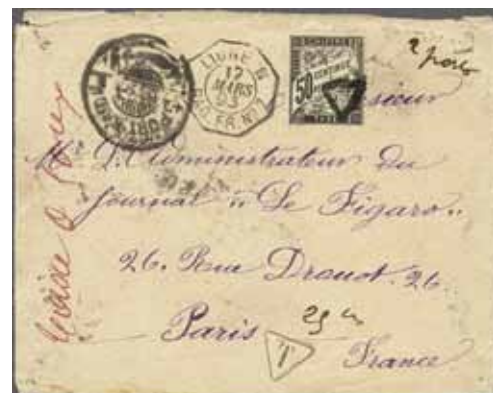 2 ports
LIGNE N
12
MARS
93
PAQ. FR. Nº 7
CHIFFRE
50 CENTIMES
TAXE
PORT SAID
Monsieur
Mr L'Administrateur du
Journal "Le Figaro"
26. Rue Drouot. 26
Paris
T
France